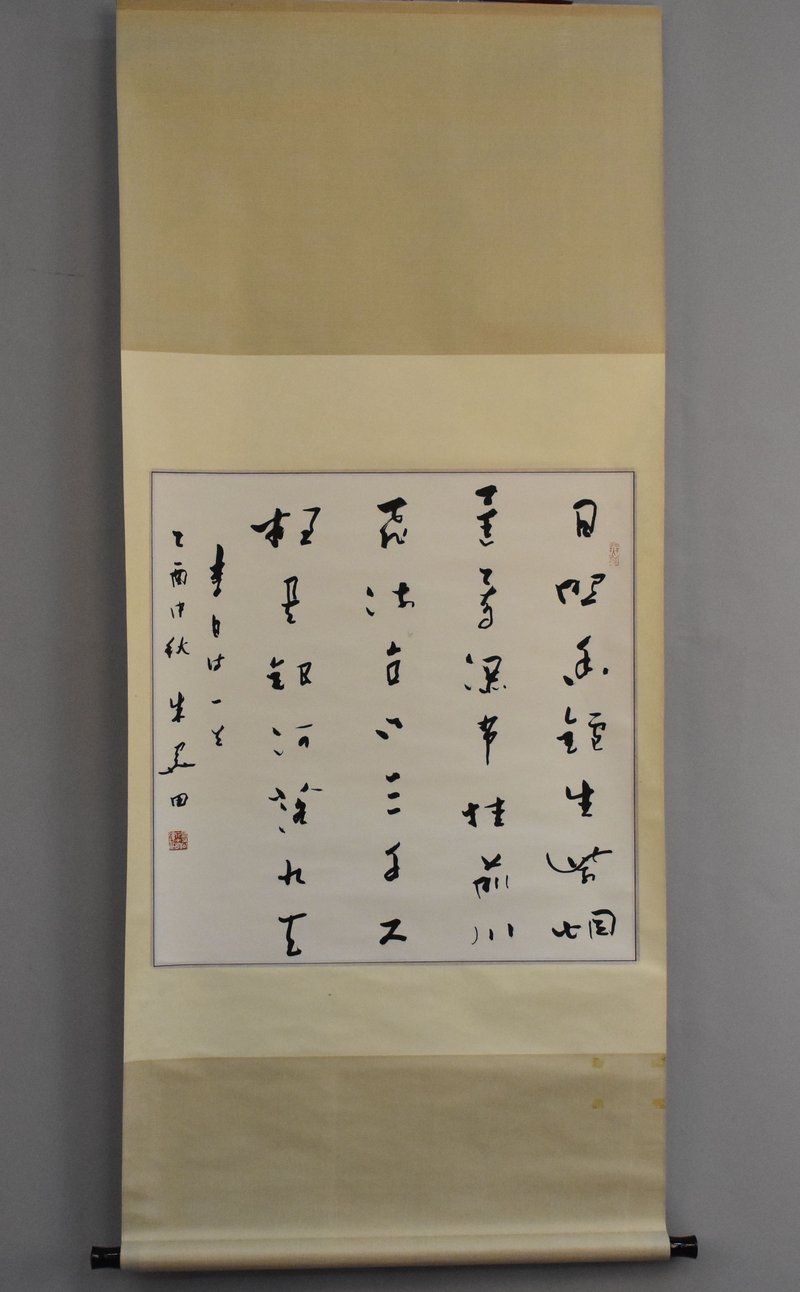 日照香鑪生紫烟
遥看瀑布挂前川
飛流直下三千尺
疑是銀河落九天
李白诗一首
乙酉中秋 朱关田